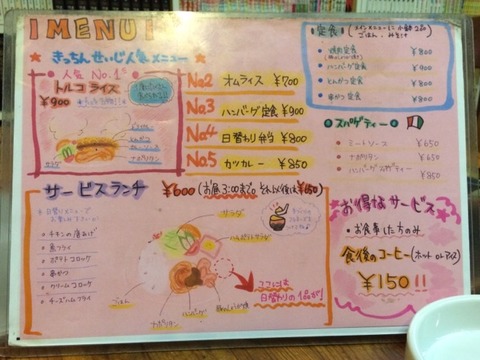 MENU
きっちんせいじ人気メニュー
人気 No.1
トルコライス
¥900
サラダ
ナポリタン
No2 オムライス ¥700
No.3 ハンバーグ定食 ¥900
No4 日替わり弁当 ¥800
No5 カツカレー ¥850
定食
ごはん、みそ汁
焼肉定食 ¥800
ハンバーグ定食 ¥900
とんかつ定食 ¥800
串かつ定食 ¥800
スパゲティー
ミートソース ¥650
ナポリタン ¥650
ハンバーグスパゲティー ¥850
サービスランチ ¥600 (お昼3:00まで。それ以後は¥650)
チキンの唐あげ
魚フライ
ポテトコロッケ
串かつ
クリームコロッケ
チーズハムフライ
サラダ
ごはん
ナポリタン
ハンバーグ
ココには
日替わりの1品が!
お得なサービス
・お食事した方のみ
食後のコーヒー(ホット or アイス)
¥150!!